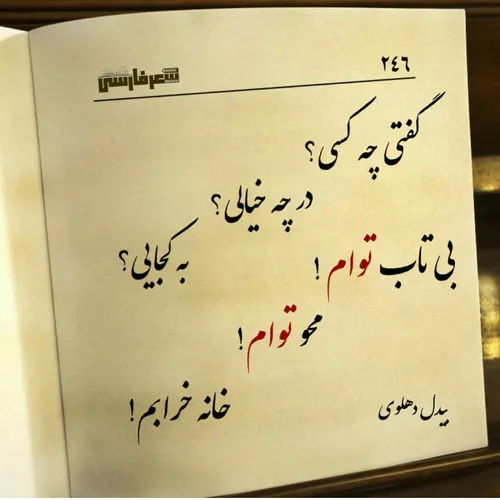 ٢٤٦
شعر فارسی
گفتی چه کسی؟
در چه خیالی؟
به کجایی؟
بی تاب توام !
محو توام !
خانه خرابم !
بیدل دهلوی